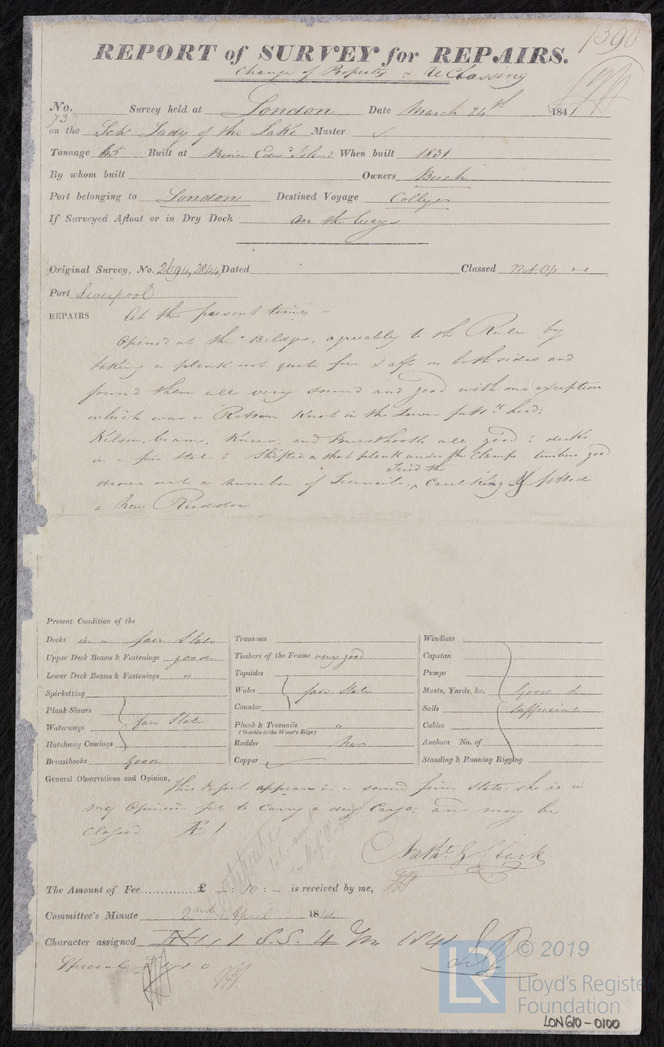 1390
REPORT of SURVEY for REPAIRS.
Change of Property & ReClassing
No. 73 Survey held at London Date March 24th 1841
on the Schr Lady of the Lake Master ✓
Tonnage 65 Built at Prince Edwd Island When built 1831
By whom built Owners Bush
Port belonging to London Destined Voyage Collyer
If Surveyed Afloat or in Dry Dock on the Ways
Original Survey, No. Dated Classed
Port Liverpool
REPAIRS At the present time –
Opened at the Bildges, agreeably to the Rule by
taking a plank out quite fore & aft on both sides and
found them all very sound and good with one exception
which was a Rotten Knot in the Lower futts head:
Kelson, beams, Knees, and Breasthooks all good: decks
in a fair state: Shifted a strake plank under the Clamps timbers good
drove out a number of Treenails, Tried the Caulking & fitted
a New Rudder
Present Condition of the
Decks in a fair State
Upper Deck Beams & Fastenings good
Lower Deck Beams & Fastenings "
Spirketting
Plank Shears
Waterways fair State
Hatchway Comings
Breasthooks Good
Transoms
Timbers of the Frame very good
Topsides
Wales fair State
Counter
Plank & Treenails "
(Outside to the Water's Edge)
Rudder New
Copper ✓
Windlass
Capstan
Pumps
Masts, Yards, &c. Good &
Sails Sufficient
Cables
Anchors No. of
Standing & Running Rigging
General Observations and Opinion, This Vessel appears in a sound firm State, she is in
my Opinion fit to carry a dry Cargo; and may be
Classed Æ 1
Nathl. G Clark
The Amount of Fee............£ – : 10 : – is received by me,
Committee's Minute 2nd April 1841
Character assigned Æ 1 S.S. 4 Yrs 1841
Special
© 2019
LR
Lloyd's Register
Foundation
LON610-0100